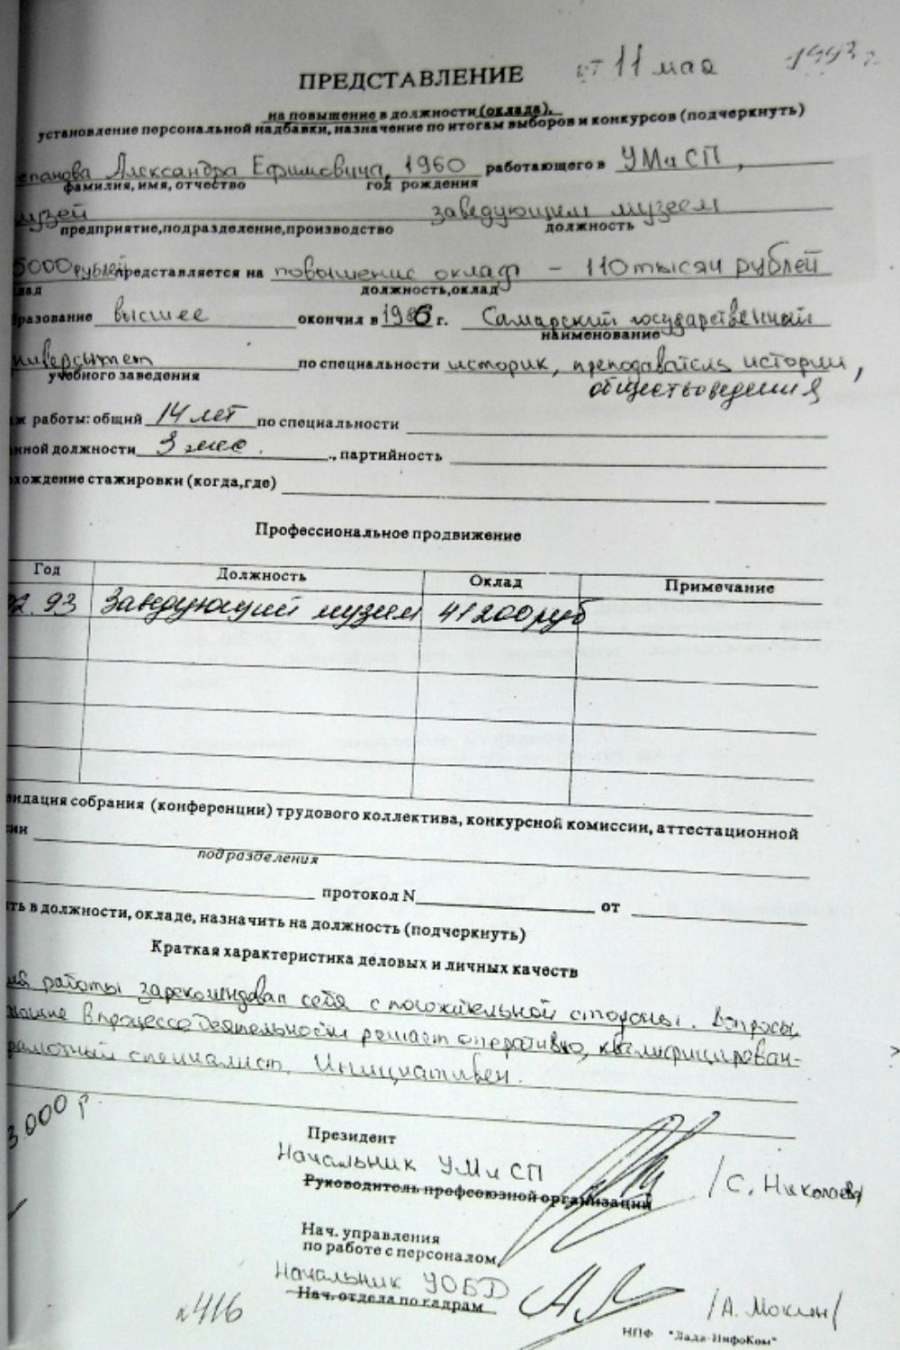 ПРЕДСТАВЛЕНИЕ от 11 мая 1993 г.
на повышение в должности (оклада),
установление персональной надбавки, назначение по итогам выборов и конкурсов (подчеркнуть)
епанова Александра Ефимовича, 1960 работающего в УМиСП,
фамилия, имя, отчество год рождения
музей заведующим музеем
предприятие, подразделение, производство должность
5000 рублей представляется на повышение оклада - 110 тысяч рублей
лад должность, оклад
разование высшее окончил в 1986 г. Самарский государственный
наименование
ниверситет по специальности историк, преподаватель истории,
учебного заведения обществоведения
ж работы: общий 14 лет по специальности
нной должности 3 мес. , партийность
хождение стажировки (когда, где)
Профессиональное продвижение
Год Должность Оклад Примечание
02.93 Заведующий музеем 41200 руб
ендация собрания (конференции) трудового коллектива, конкурсной комиссии, аттестационной
сии
подразделения
протокол N от
ть в должности, окладе, назначить на должность (подчеркнуть)
Краткая характеристика деловых и личных качеств
работы зарекомендовал себя с положительной стороны. Вопросы,
в процессе деятельности решает оперативно, квалифицирован-
рамотный специалист. Инициативен.
3.000 р.
Президент
Начальник УМиСП /С. Николаев/
Руководитель профсоюзной организации
Нач. управления
по работе с персоналом
Начальник УОБД
Нач. отдела по кадрам /А. Моклон/
2416
НПФ "Лада-ИнфоКом"